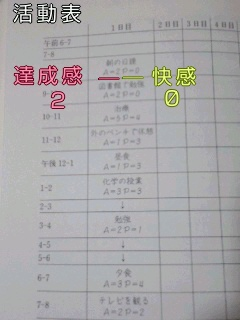 活動表
1日目 2日目 3日目
午前6-7
7-8
達成感 快感
2 0
A=2 P=0
9-
図書館で勉強
A=2 P=0
10-11
治療
A=5 P=4
11-12
外のベンチで休憩
A=1 P=3
午後12-1
昼食
A=1 P=3
1-2
化学の授業
A=3 P=3
2-3
↓
3-4
勉強
A=2 P=1
4-5
↓
5-6
↓
6-7
夕食
A=3 P=4
7-8
テレビを観る
A=2 P=2